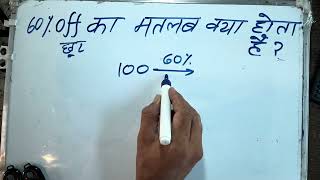 60% Off का मतलब क्या होता
छूट है ?
60%
100 →